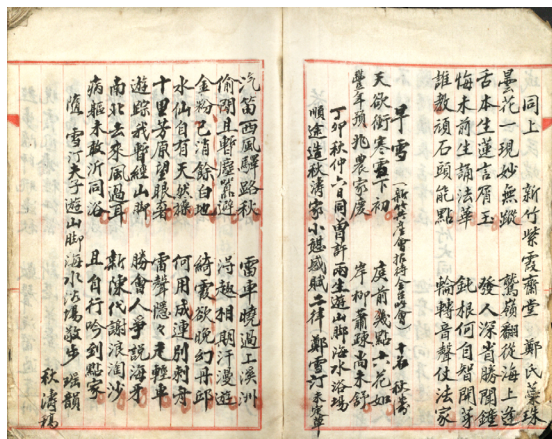 同上 新竹紫霞齋堂 鄭氏蘂珠
曇花一現妙無蹤 鷲嶺翻從海上逢
舌本生蓮言屑玉 發人深省勝聞鐘
悔未前生誦法華 鈍根何自智開芽
誰教頑石頭能點 輪轉音聲仗法家
早雪 十名 秋濤
天欲銜寒雪下初 庭前幾點六花如
豐年預兆農家慶 岸柳蕭疎尚未舒
丁卯秋仲六日同曾許兩生遊山脚海水浴場
順途造秋濤家小憩感賦二律 鄭雪汀 未定草
汽笛西風驛路秋 雷車曉過上溪洲
偷閒且暫塵氛避 得趣相期汗漫遊
金粉已消餘白地 綺霞欲晚幻丹邱
水仙自有天然操 何用成連別刺舟
十里芳原望眼賒 雷聲隱々走輕車
遊踪我暫經山脚 勝會人爭說海牙
南北去來風過耳 新陳代謝浪淘沙
病軀未敢沂同浴 且自行吟到點家
隨雪汀夫子遊山脚海水浴場敬步瑤韻
秋濤稿